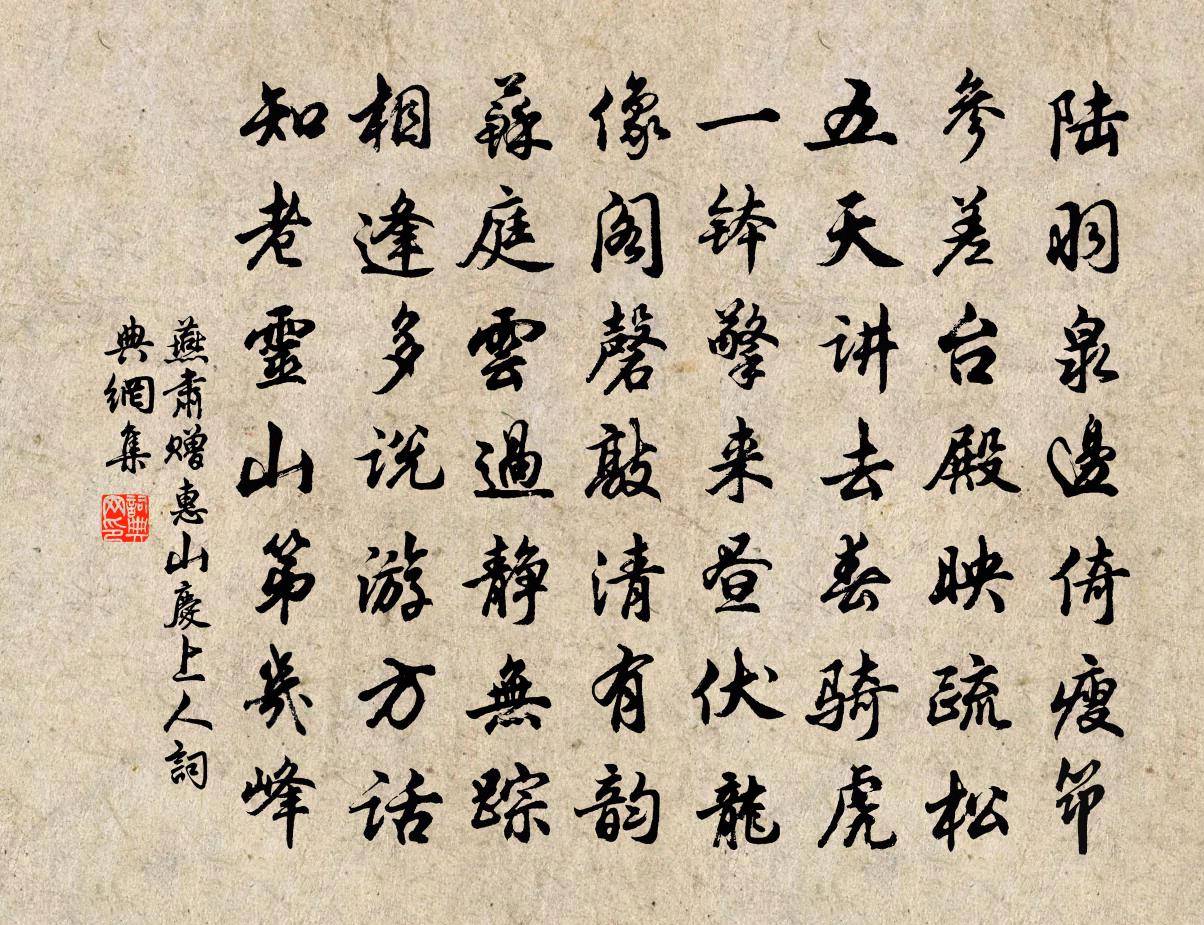 陆羽泉邊倚瘦筇
参差台殿映疏松
五天讲去春骑虎
一钵擎来昼伏龍
像阁磬敲清有韵
藓庭雲過静無踪
相逢多说游方话
知老靈山第幾峰
燕肃赠惠山慶上人詞
典網集
詞典网印